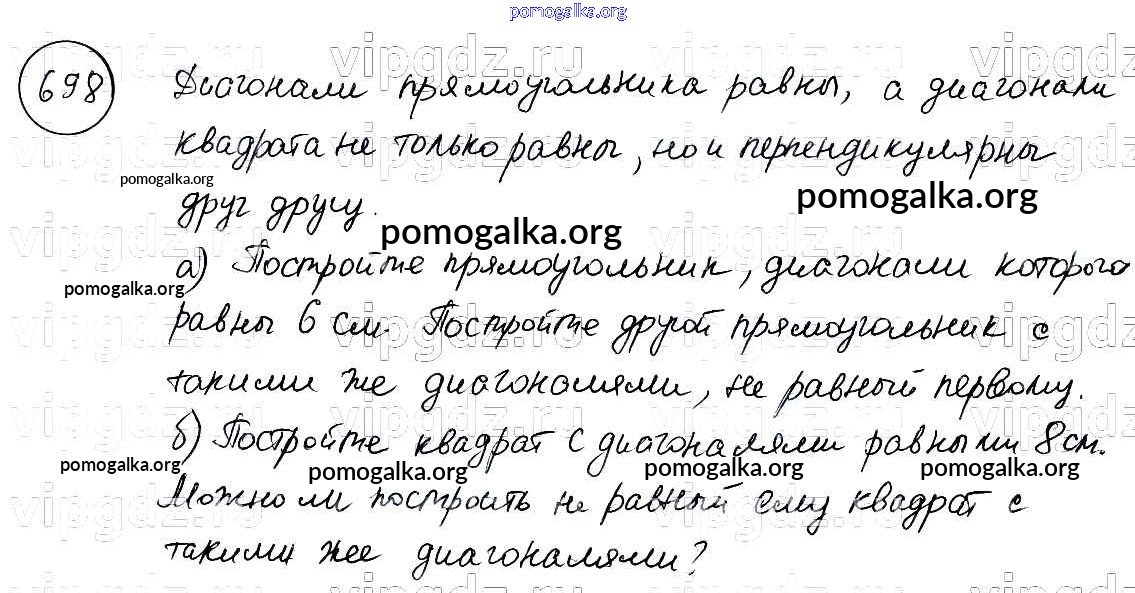 pomogalka.org
698 Диагонали прямоугольника равны, а диагонали
квадрата не только равны, но и перпендикулярны
pomogalka.org
pomogalka.org
друг другу.
pomogalka.org
а) Постройте прямоугольник, диагонали которого
pomogalka.org
равны 6 см. Постройте другой прямоугольник с
такими же диагоналями, не равный первому.
б) Постройте квадрат с диагоналями равными 8 см.
pomogalka.org pomogalka.org pomogalka.org pomogalka.org
Можно ли построить не равный ему квадрат с
такими же диагоналями?
vipgdz.ru